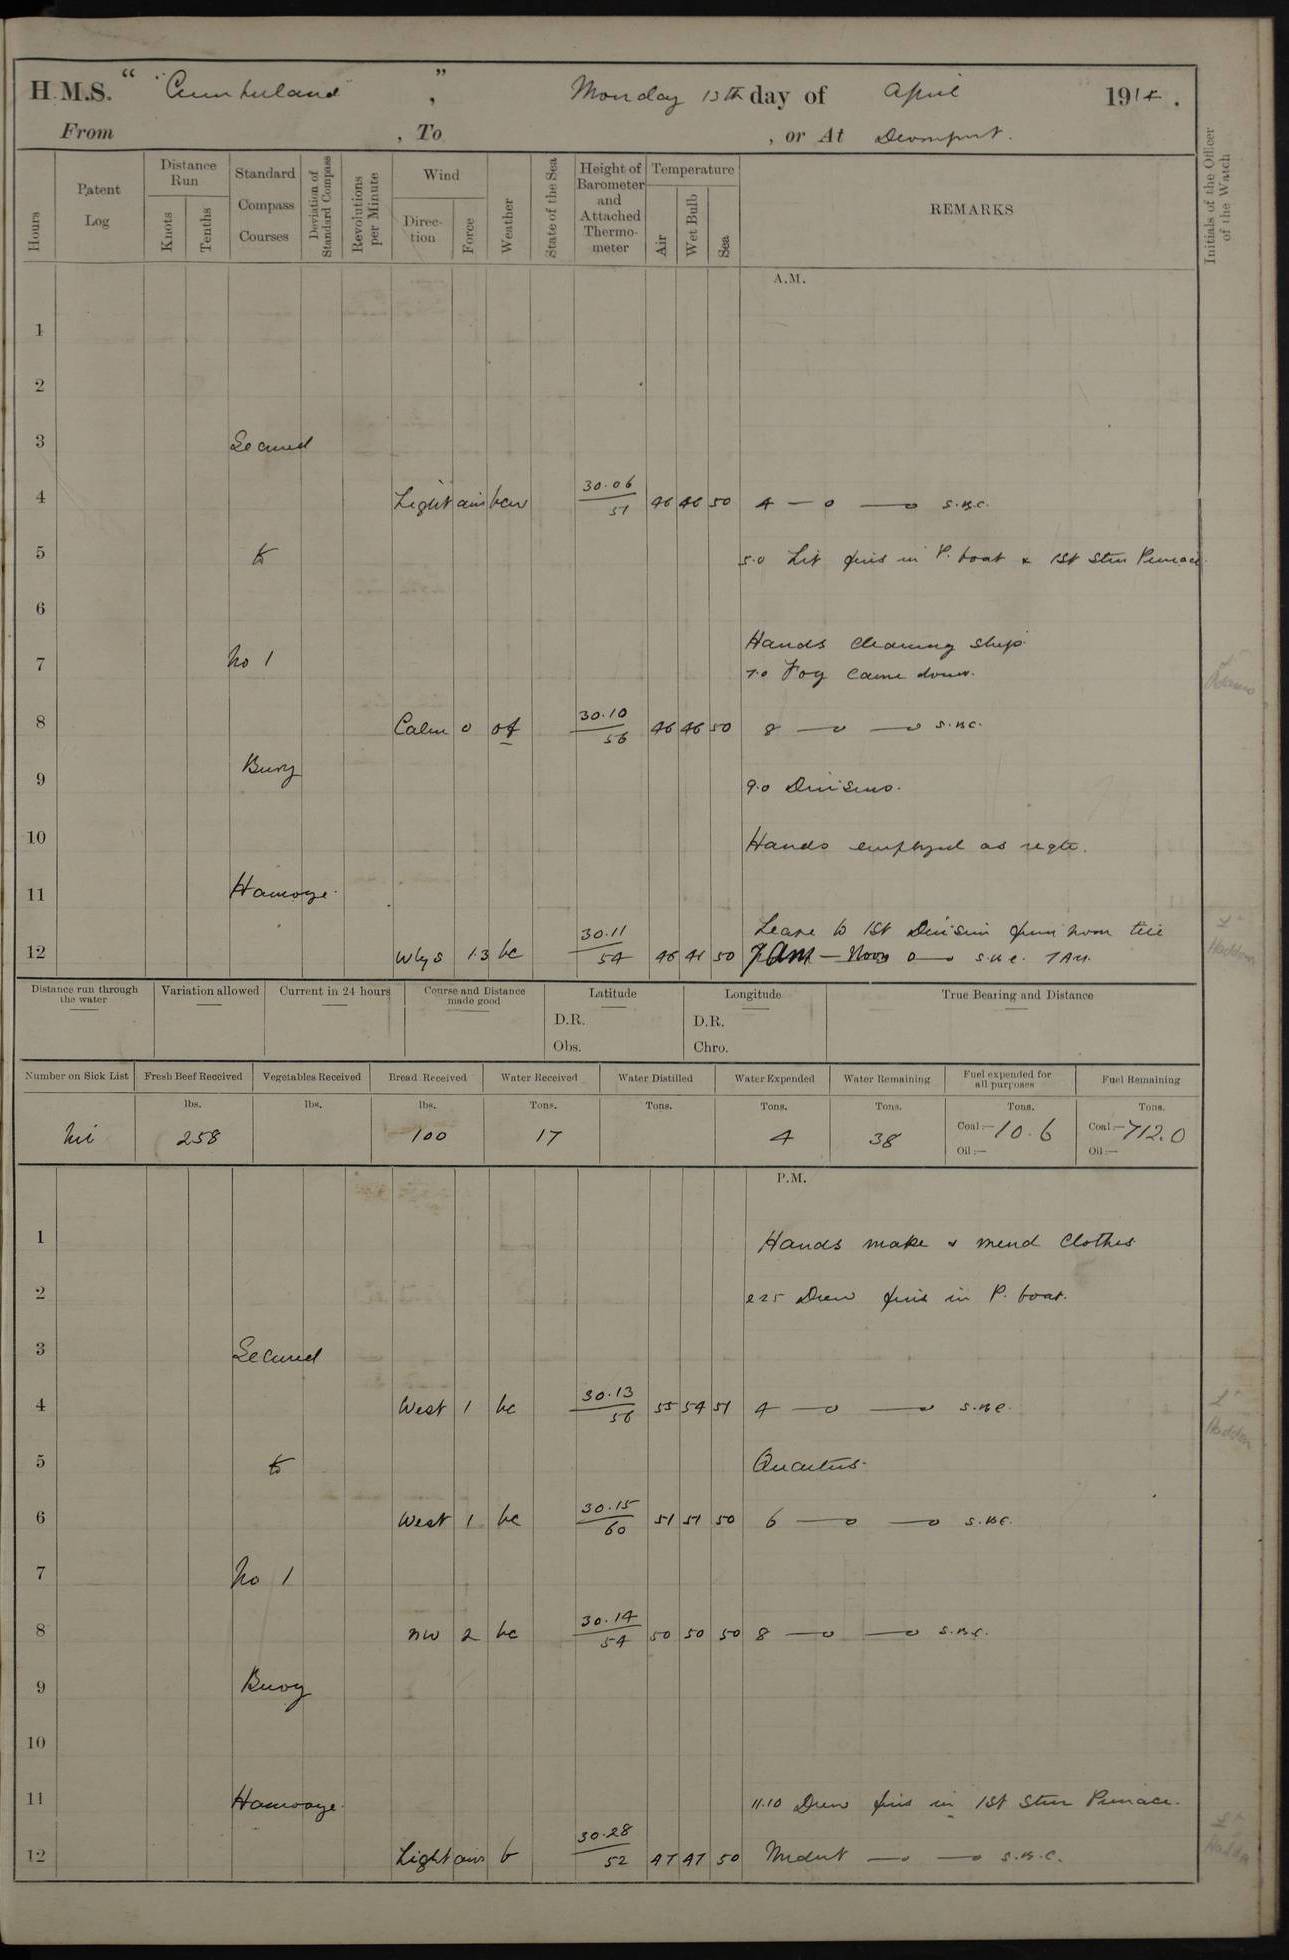 H.M.S. " "Cumberland" ", Monday 13th day of April 1914.
From , To , or At Devonport.
Hours
Patent Log
Distance Run
Knots
Tenths
Standard Compass Courses
Deviation of Standard Compass
Revolutions per Minute
Wind
Direction
Force
Weather
State of the Sea
Height of Barometer and Attached Thermometer
Temperature
Air
Wet Bulb
Sea
REMARKS
Initials of the Officer of the Watch
A.M.
1
2
3 Secured
4 Light airs bcw 30.06 51 46 46 50 4 — o —o S.B.C.
5 to 5.0 Lit fires in P. boat & 1st Stm Pinnace
6
Hands cleaning ship
7 No 1 7.0 Fog came down.
8 Calm 0 of 30.10 56 46 46 50 8 —o —o S.B.C.
Buoy
9 9.0 Divisions.
10 Hands employed as reqte.
11 Hamoaze.
Leave to 1st Division from noon till
12 Wlys 1.3 bc 30.11 54 46 50 7AM — Noon o—o 7 AM.
Distance run through the water
Variation allowed
Current in 24 hours
Course and Distance made good
Latitude
D.R.
Obs.
Longitude
D.R.
Chro.
True Bearing and Distance
Number on Sick List Fresh Beef Received Vegetables Received Bread Received Water Received Water Distilled Water Expended Water Remaining Fuel expended for all purposes Fuel Remaining
lbs. lbs. lbs. Tons. Tons. Tons. Tons. Tons. Tons.
Nil 258 100 17 4 38 Coal:— 10.6 Coal:— 712.0
Oil:— Oil:—
P.M.
1 Hands make & mend clothes
2 2.25 Drew fires in P. boat.
3 Secured
4 West 1 bc 30.13 56 55 54 51 4 —o —o S.B.C.
5 to Quarters.
6 West 1 bc 30.15 60 51 51 50 6 —o —o S.B.C.
7 No 1
8 NW 2 bc 30.14 54 50 50 50 8 —o —o S.B.C.
9 Buoy
10
11 Hamoaze. 11.10 Drew fires in 1st Stm Pinnace.
12 Light airs b 30.28 52 47 47 50 Midnt —o —o S.B.C.